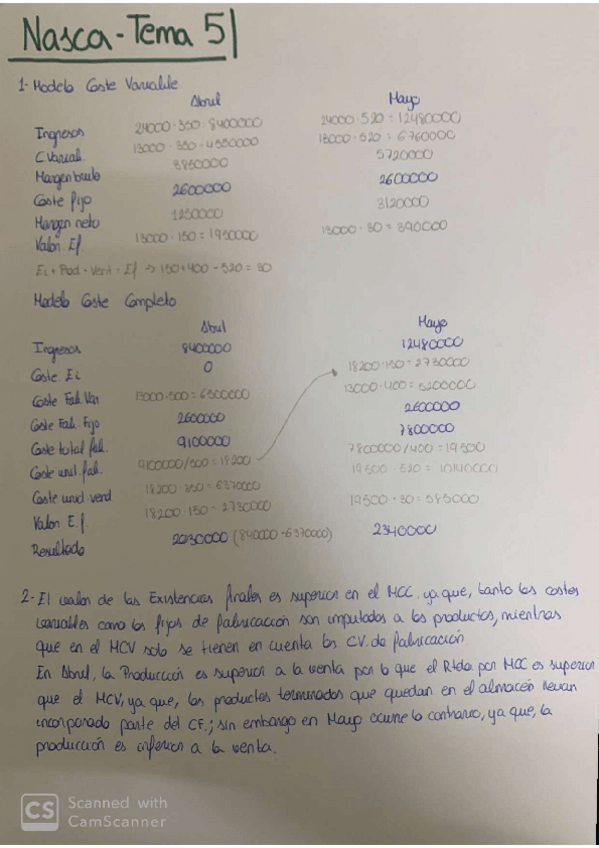 Nasca - Tema 5
1- Modelo Coste Variable
Abril Mayo
Ingresos 24000 · 350 = 8400000 24000 · 520 = 12480000
C Variab. 13000 · 350 = 4550000 13000 · 520 = 6760000
Margen bruto 3850000 5720000
Coste fijo 2600000 2600000
Margen neto 1250000 3120000
Valor Ef. 13000 · 150 = 1950000 13000 · 30 = 390000
Ei + Prod - Vent = Ef → 150 + 400 - 520 = 30
Modelo Coste Completo
Abril Mayo
Ingresos 8400000 12480000
Coste Ei 0 18200 · 150 = 2730000
Coste Fab. Var 13000 · 500 = 6500000 13000 · 400 = 5200000
Coste Fab. Fijo 2600000 2600000
Coste total fab. 9100000 7800000
Coste unit. fab. 9100000/500 = 18200 7800000/400 = 19500
Coste unid vend 18200 · 350 = 6370000 19500 · 520 = 10140000
Valor E.f. 18200 · 150 = 2730000 19500 · 30 = 585000
Resultado 2030000 (840000 - 6370000) 2340000
2- El valor de las Existencias finales es superior en el MCC, ya que, tanto los costes
variables como los fijos de fabricación son imputados a los productos, mientras
que en el MCV solo se tienen en cuenta los CV. de fabricación.
En Abril, la Producción es superior a la venta por lo que el Rtdo por MCC es superior
que el MCV, ya que, los productos terminados que quedan en el almacén llevan
incorporado parte del CF.; sin embargo en Mayo ocurre lo contrario, ya que, la
producción es inferior a la venta.
CS Scanned with
CamScanner